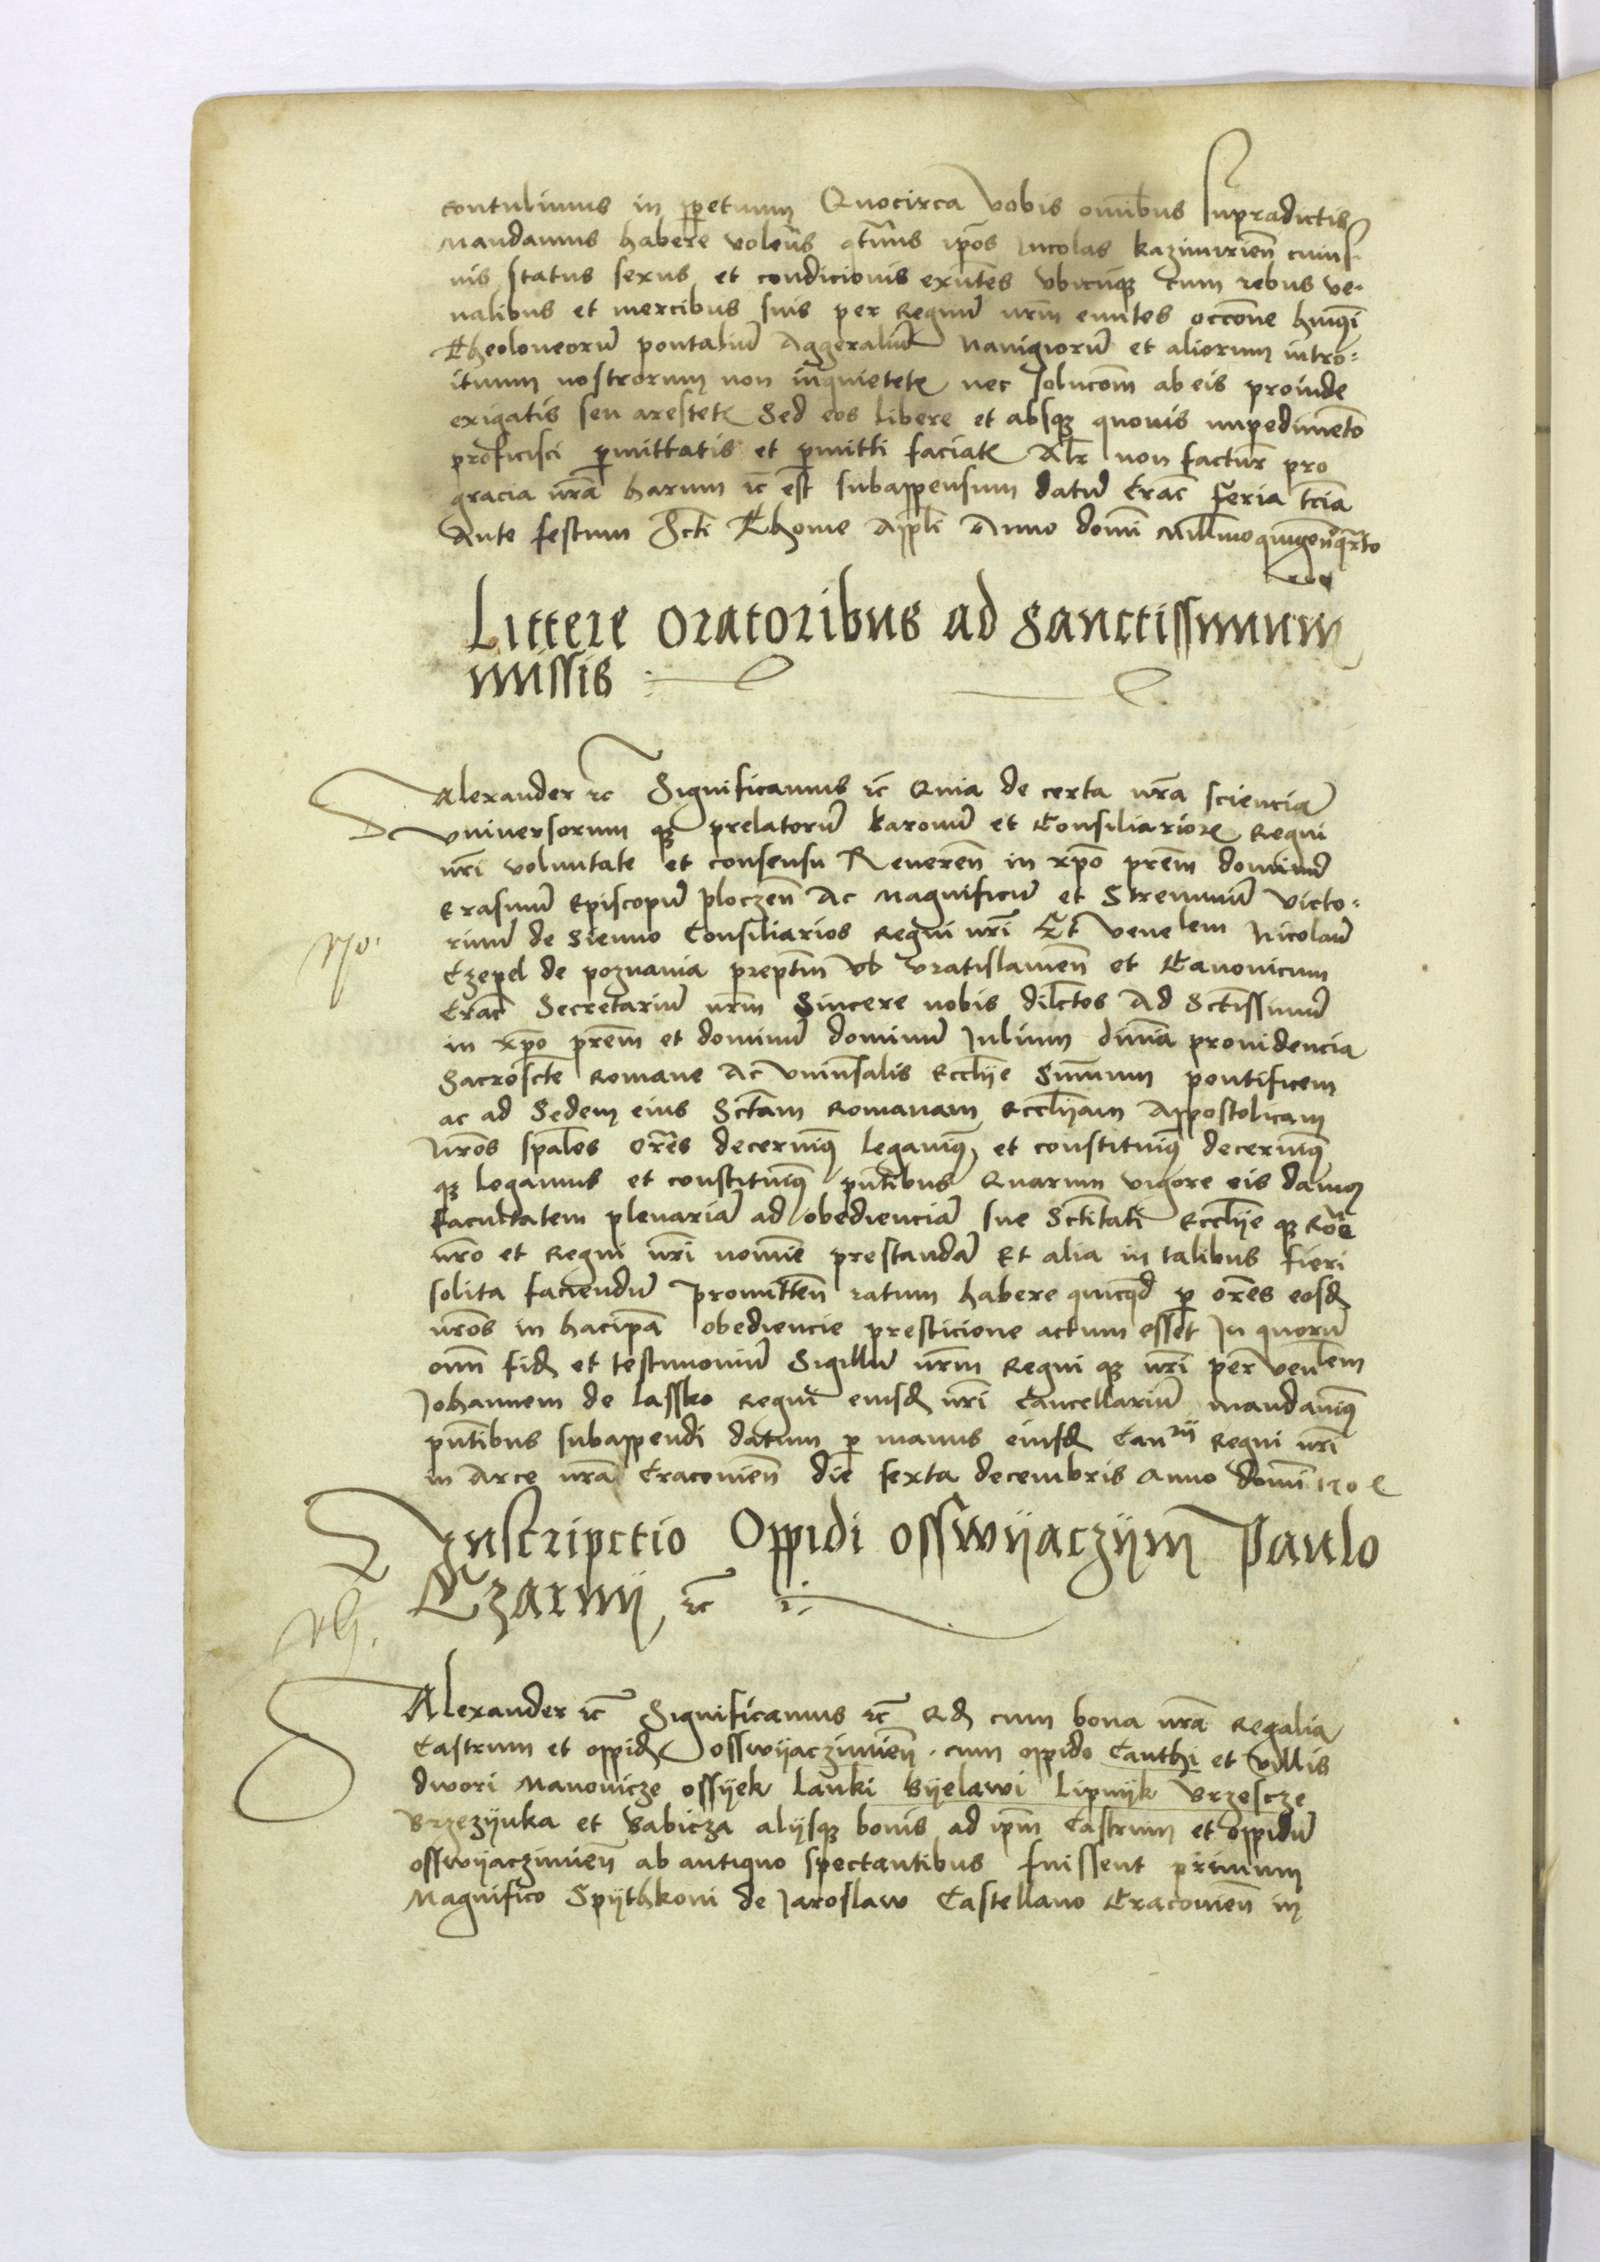 contulimus in ꝑpetuum Quocirca vobis omībus supradictis
Mandamus habere voleñs ꝗtīus ip̄os Incolas kazimirieñ cuius-
uis status sexus et condicionis exn̄tes vbicūqȝ cum rebus ve-
nalibus et mercibus suis per Regnū nr̄m eūntes occōne hmōi
Theoloneorū pontaliū Aggeraliū Nauigiorū et aliorum intro-
ituum nostrorum non inquietetꝭ nec solucōm ab eis proinde
exigatis seu arestetꝭ Sed eos libere et absqȝ quouis impedimēto
proficisci ꝑmittatis et ꝑmitti faciatꝭ Alr̄ non factur̄ pro
gracia nr̄a harum ꝛc̄ est subappensum datū Crac̄ feria tc̄ia
Ante festum Sc̄ti Thome App̄li Anno domī Mill̄moquingen̄oqrto
Littere oratoribus ad Sanctissimum
missis
Alexander ꝛc Significamus ꝛc̄ Quia de certa nr̄a sciencia
vniuersorum qȝ prelatorū baronū et Consiliarioꝝ Regni
nr̄i voluntate et consensu Reuereñ in xp̄o pr̄em dominū
Erasmū Episcopū ploczeñ Ac Magnificū et Strenuū victo-
rinū de Sienno Consiliarios Regni nr̄i Et Venelem Nicolaū
Czepel de poznania prep̄tm vratislauieñ et Canonicum
Crac̄ Secretariū nr̄m Sincere nobis dil̄ctos Ad Sc̄tissimū
in xp̄o pr̄em et dominū dominū Iulium diuīa prouidencia
Sacrosc̄te Romane Ac vniu̇salis Eccl̄ije Sum̄um pontificem
ac ad Sedem eius Sc̄tam Romanam Eccl̄ijam Appostolicam
Nr̄os sp̄ales or̄es decernimꝰ legamꝰ et constituimꝰ decernimꝰ
qȝ legamus et constituimꝰ pn̄tibus Quarum vigore eis damꝰ
facultatem plenariā ad obedienciā sue Sc̄titati Eccl̄ije qȝ Roē
nr̄o et Regni nr̄i nomīe prestandā Et alia in talibus fieri
solita faciendū promitteñ ratum habere quicqd ꝑ or̄es eosd
nr̄os in hac ip̄a obediencie presticione actum esset In quorū
om̄ fid et testimoniū Sigillū nr̄m Regni qȝ nr̄i per ven̄lem
Iohannem de lassko Regni eiusd nr̄i Cancellariū mandauimꝰ
pn̄tibus subappendi datum ꝑ manus eiusd Canrij Regni nr̄i
in Arce nr̄a Cracouieñ die sexta decembris Anno domī
Inscripctio Oppidi osswijaczijm Paulo
Czarnij ꝛc̄
Alexander ꝛc̄ Significamus ꝛc̄ Qd cum bona nr̄a Regalia
Castrum et oppid osswijaczimieñ . cum oppido Canthi et villis
dwori Manowicze ossijek lanki Bijelawi Lipnijk Brzescze
Brzezijnka et Babicza alijsqȝ bonis ad ip̄m Castrum et oppidū
osswijaczimieñ ab antiquo spectantibus fuissent primum
Magnifico Spijthkoni de Iaroslaw Castellano Cracouieñ in